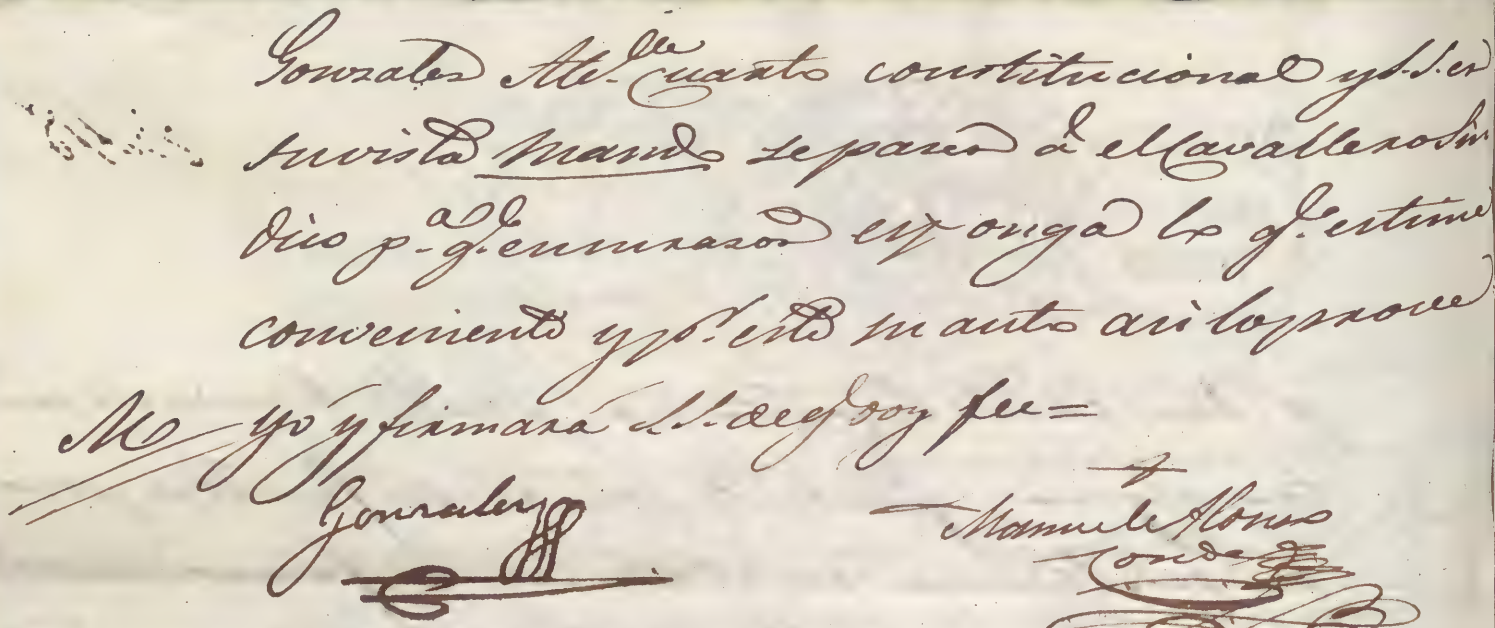 Gonzales Ale.^de cuarto constitucional y S.S. en
su vista mando se pasen â el Cavallero Sin
dico p.^a q.^e en su razon exponga lo q.^e estime
conveniente y p.^r este su auto asi lo prove
yó y firmará S.S. de q.^e doy fee =
Gonzalez
Manuel Alonso
Conde